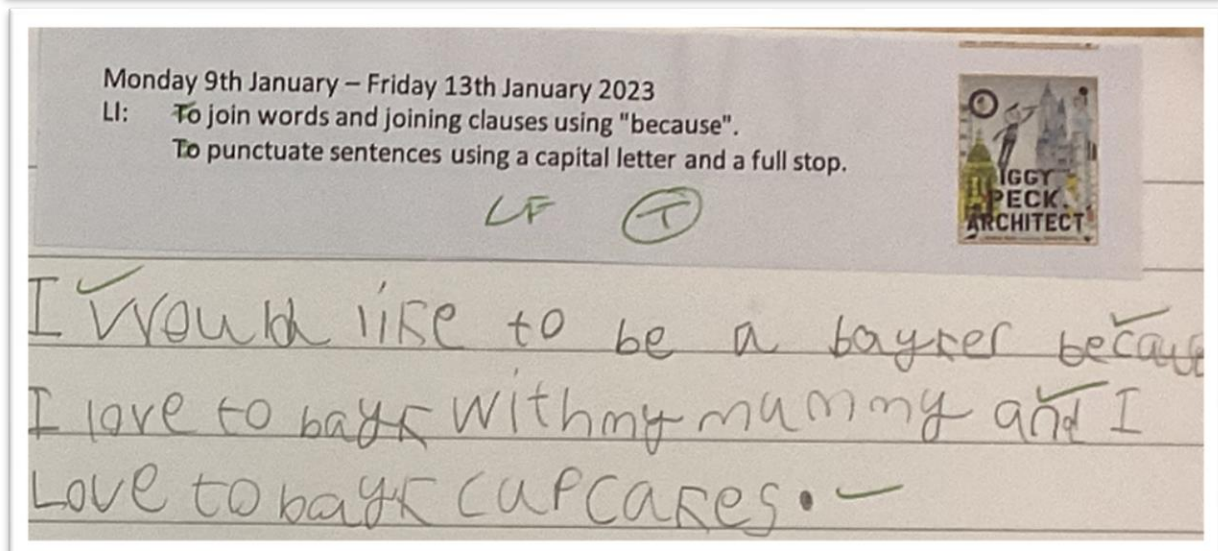 Monday 9th January – Friday 13th January 2023
LI: To join words and joining clauses using "because".
To punctuate sentences using a capital letter and a full stop.
IGGY
PECK
ARCHITECT
LF T
I would like to be a bayker because
I love to bayk with my mummy and I
Love to bayk cupcakes.